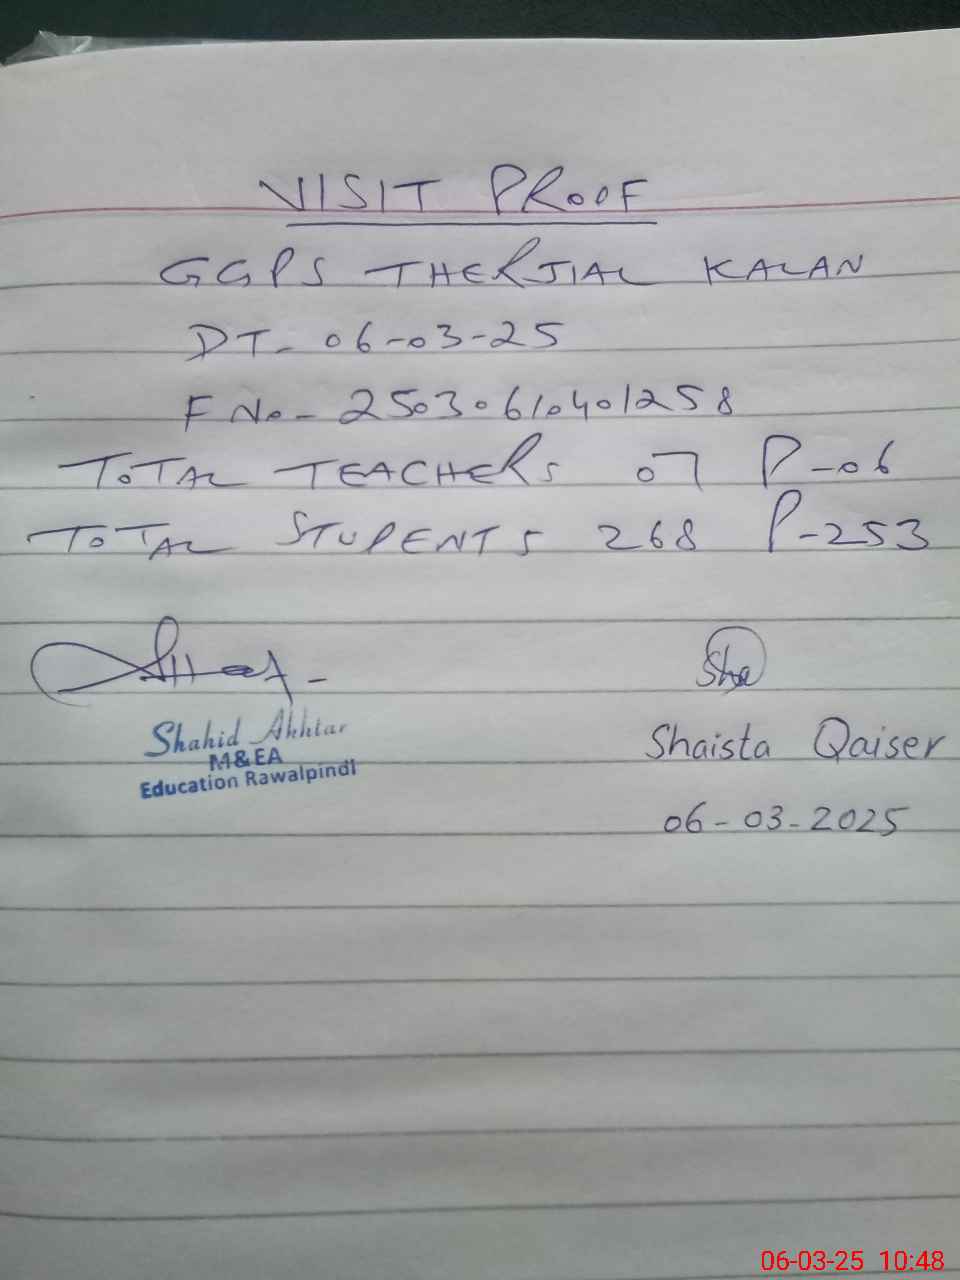 VISIT PROOF
GGPS THERJIAL KALAN
DT- 06-03-25
F No- 25030610401258
TOTAL TEACHERS 07 P-06
TOTAL STUDENTS 268 P-253
Sha
Shahid Akhtar
M&EA
Education Rawalpindi
Shaista Qaiser
06-03-2025
06-03-25 10:48